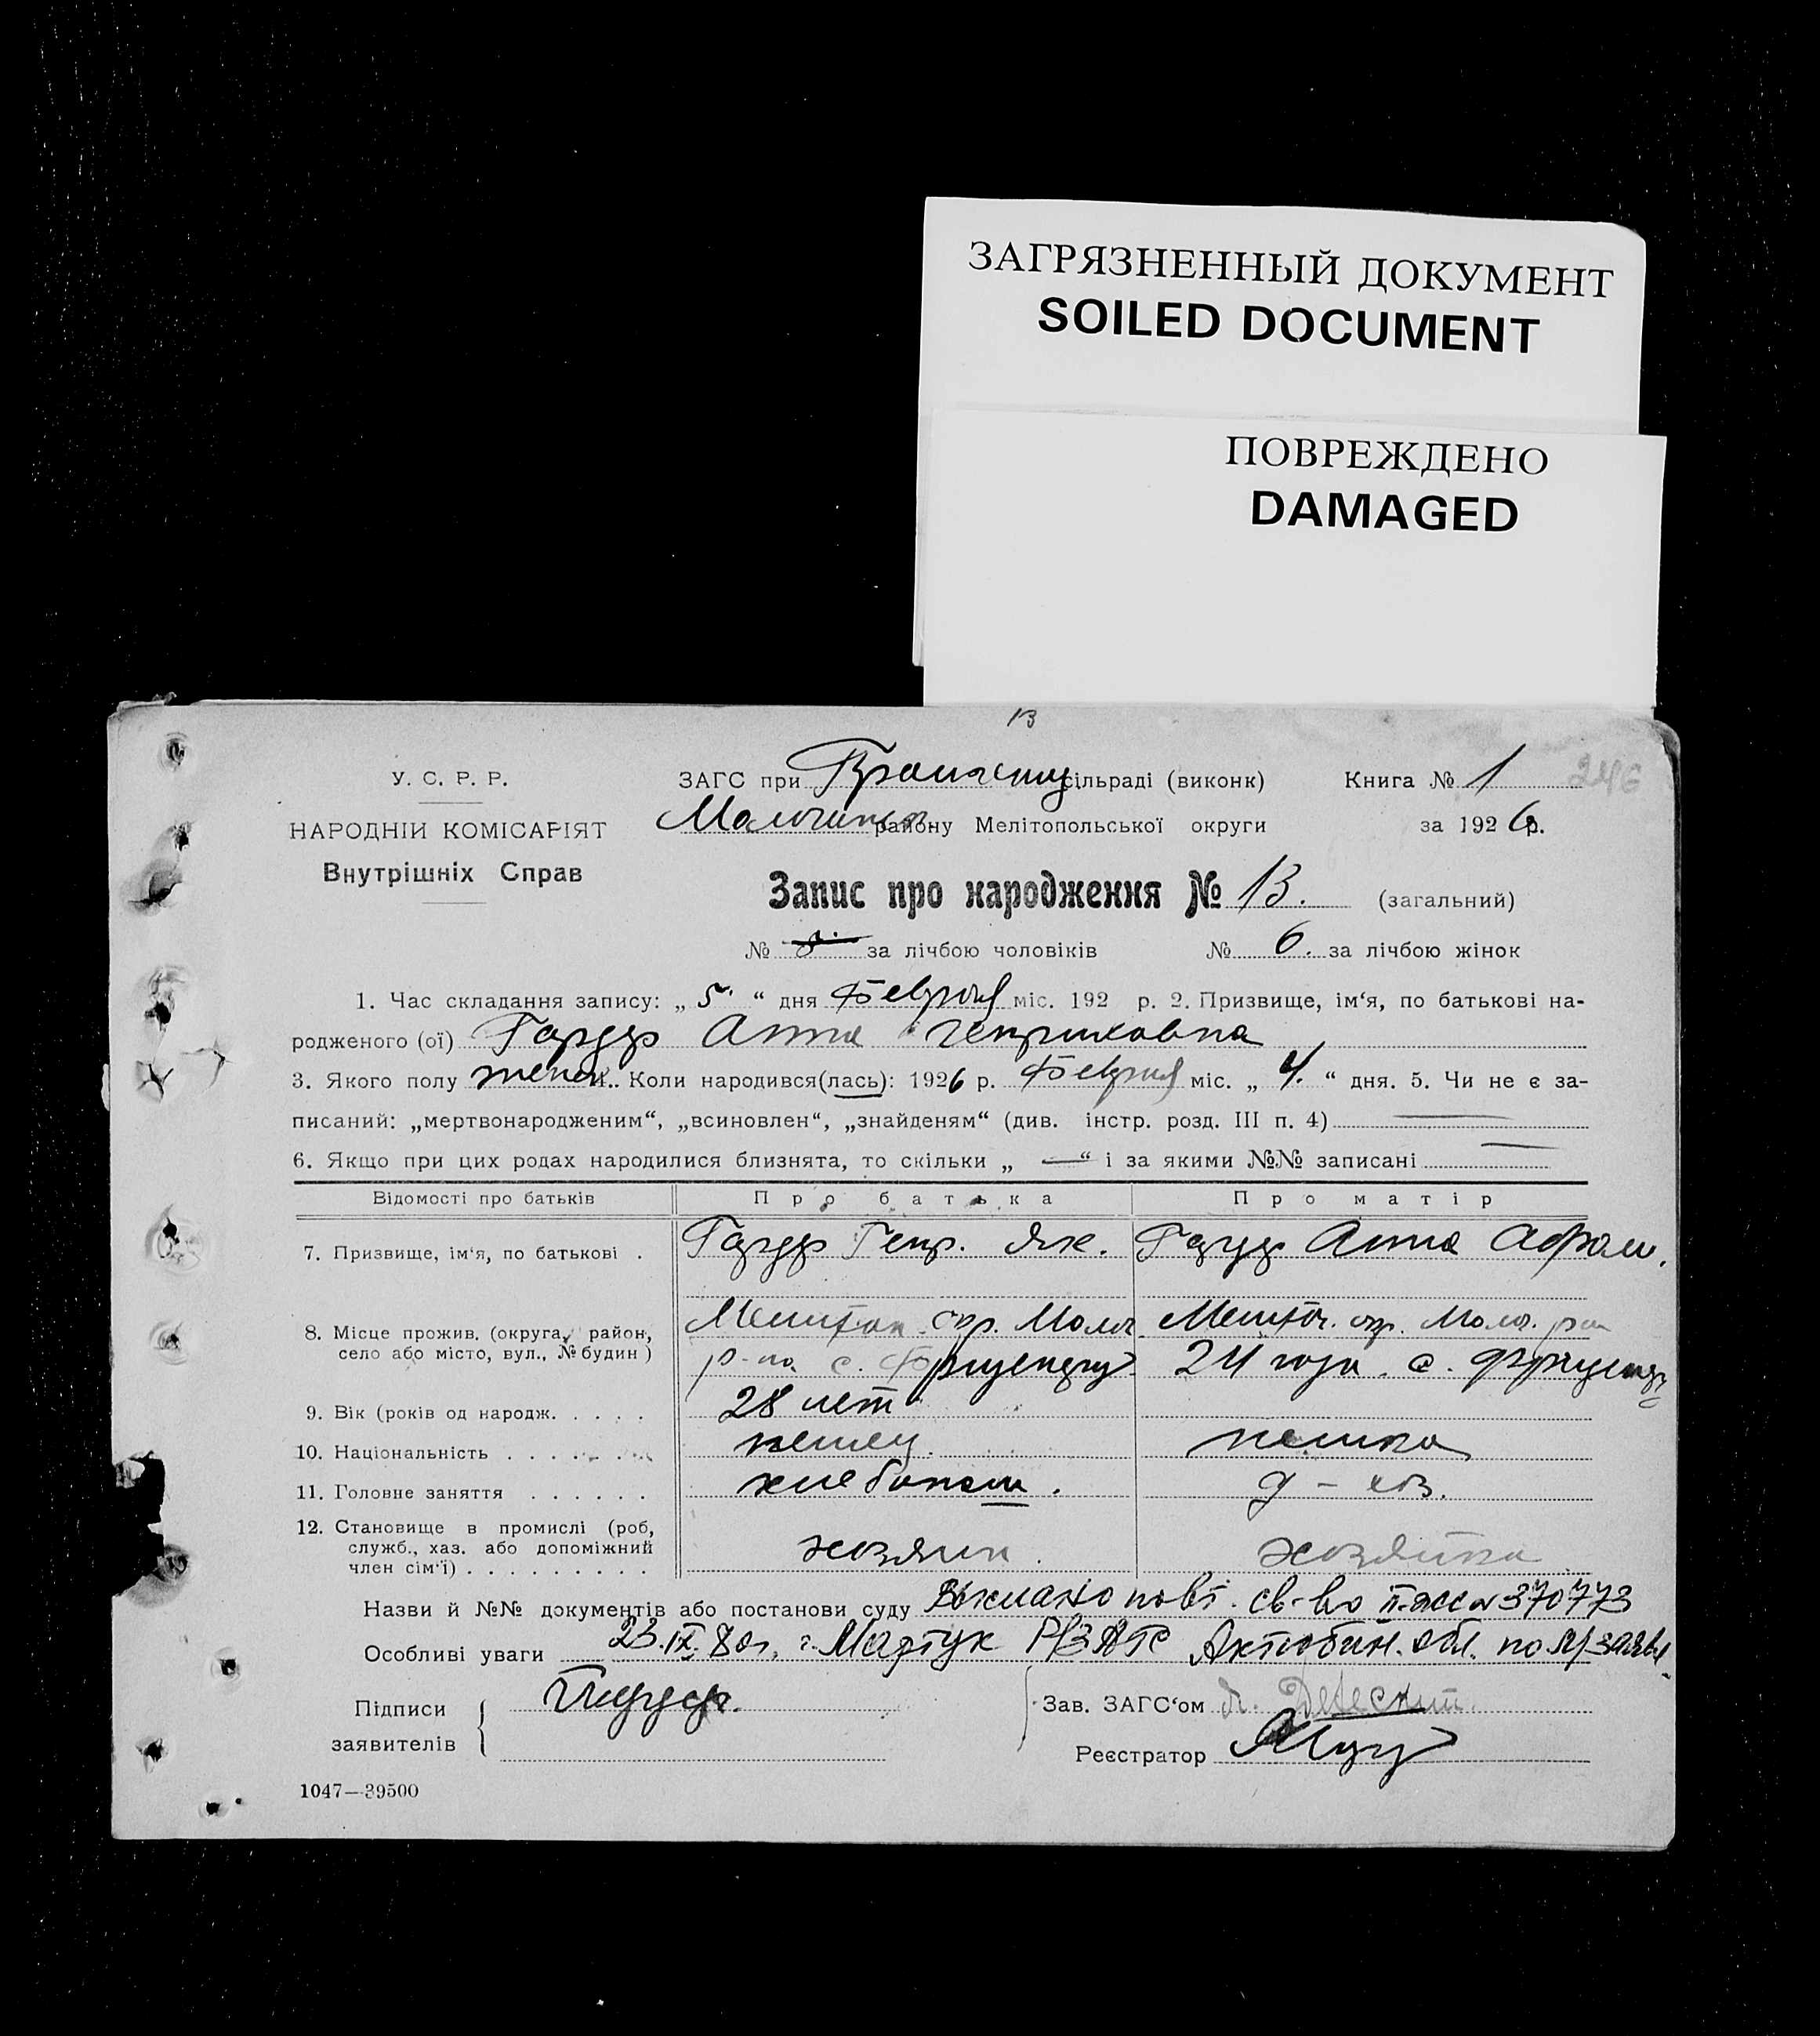 ЗАГРЯЗНЕННЫЙ ДОКУМЕНТ
SOILED DOCUMENT
ПОВРЕЖДЕНО
DAMAGED
13
У. С. Р. Р.
ЗАГС при сільраді (виконк) Книга № 1
НАРОДНІЙ КОМІСАРІЯТ
району Мелітопольської округи за 1926 р.
Внутрішніх Справ
Запис про народження № 13. (загальний)
№ за лічбою чоловіків № 6. за лічбою жінок
1. Час складання запису: „ 5 “ дня Февраля міс. 192 р. 2. Призвище, ім‘я, по батькові на-
родженого (ої) Анна Генриховна
3. Якого полу женск. Коли народився(лась): 1926 р. Февраля міс. „ 4. “ дня. 5. Чи не є за-
писаний: „мертвонародженим“, „всиновлен“, „знайденям“ (див. інстр. розд. III п. 4)
6. Якщо при цих родах народилися близнята, то скільки „ — “ і за якими №№ записані —
Відомості про батьків Про батька Про матір
7. Призвище, ім‘я, по батькові . Генр. Як. Анна Абрам.
8. Місце прожив. (округа, район, Мелитоп. окр. Молоч. Мелитоп. окр. Молоч. р-на
село або місто, вул., № будин ) р-на с. 24 года. с.
9. Вік (років од народж. . . . . 28 лет
10. Національність . . . . . . . немец. немка
11. Головне заняття . . . . . . хлебопаш. д – хоз.
12. Становище в промислі (роб,
служб., хаз. або допоміжний хозяин. хозяйка
член сім‘ї) . . . . . . . . .
Назви й №№ документів або постанови суду Выслано повт. св-во № 370773
Особливі уваги 23.IX.80г. г. Мартук РЗАГС Актюбин. обл. по м/заявл.
Підписи
заявителів
Зав. ЗАГС‘ом
Реєстратор
1047—39500